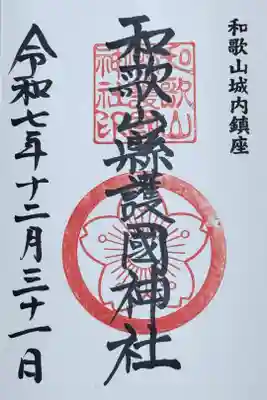 和歌山城内鎮座
和歌山縣護國神社
和歌山縣護國神社印
令和七年十二月三十一日